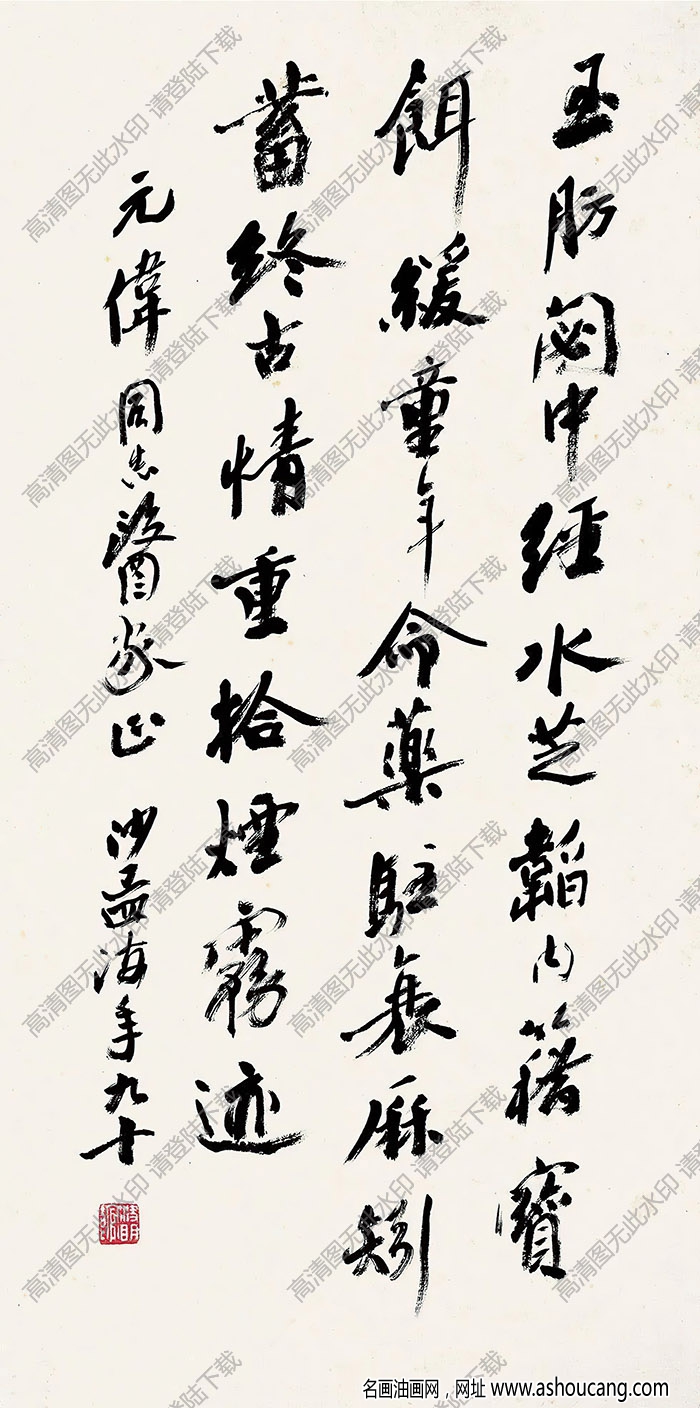 玉肪閟中經水芝韜内籍寶
餌緩童年命藥駐衰厤矧
蓄終古情重拾煙霧迹
元偉同志醫家正 沙孟海年九十
高清图无此水印 请登陆下载
名画油画网，网址 www.ashoucang.com